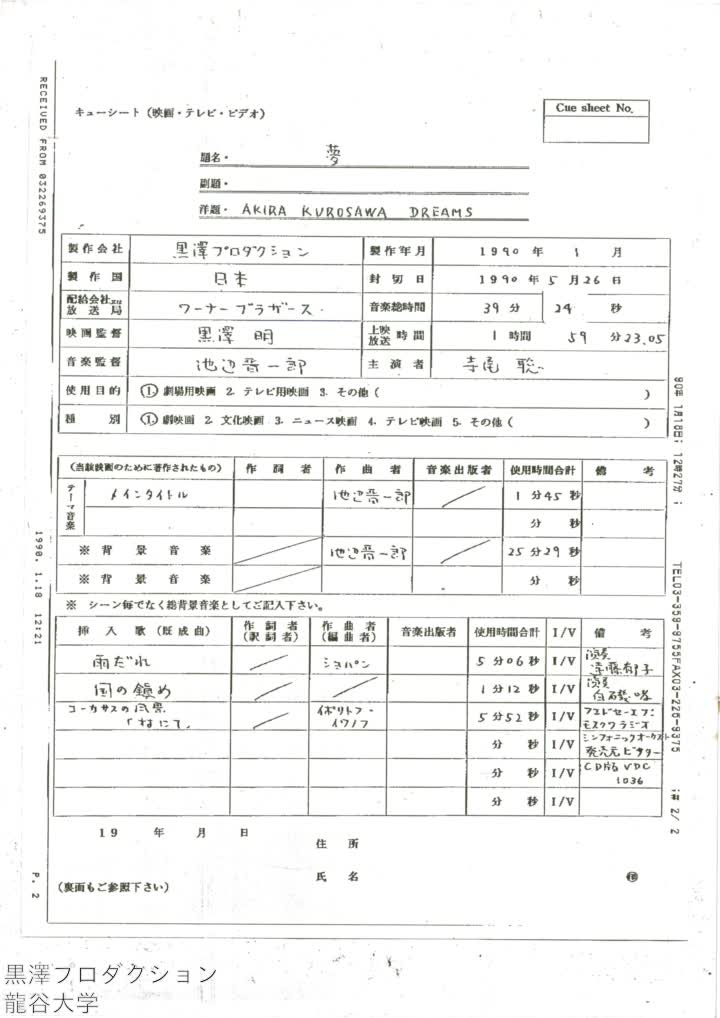 キューシート(映画・テレビ・ビデオ)
Cue sheet No.
題名・ 夢
副題・
洋題・ AKIRA KUROSAWA DREAMS
製作会社 黒澤プロダクション 製作年月 1990年 1月
製作国 日本 封切日 1990年5月26日
配給会社又は放送局 ワーナーブラザース. 音楽総時間 39分 24秒
映画監督 黒澤 明 上映放送時間 1時間 59分23.05
音楽監督 池辺晋一郎 主演者 寺尾 聰
使用目的 ①劇場用映画 2. テレビ用映画 3. その他( )
種別 ①劇映画 2. 文化映画 3. ニュース映画 4. テレビ映画 5. その他( )
(当該映画のために著作されたもの) 作詞者 作曲者 音楽出版者 使用時間合計 備考
テーマ音楽 メインタイトル 池辺晋一郎 1分45秒
分 秒
※背景音楽 池辺晋一郎 25分29秒
※背景音楽 分 秒
※ シーン毎でなく総背景音楽としてご記入下さい。
挿入歌(既成曲) 作詞者(訳詞者) 作曲者(編曲者) 音楽出版者 使用時間合計 I/V 備考
雨だれ ショパン 5分06秒 I/V 演奏 遠藤郁子
国の鎮め 1分12秒 I/V 演奏
コーカサスの風景「村にて」 イポリトフ・イワノフ 5分52秒 I/V
モスクワラジオ
分 秒 I/V シンフォニックオーケスト
発売元ビクター
分 秒 I/V CD版 VDC
1036
分 秒 I/V
19 年 月 日
住所
氏名 ㊞
(裏面もご参照下さい)
RECEIVED FROM 032269375
1990. 1.18 12:21
P. 2
90年 1月18日; 12時27分;
TEL03-358-8755FAX03-226-9375
;# 2/ 2
黒澤プロダクション
龍谷大学